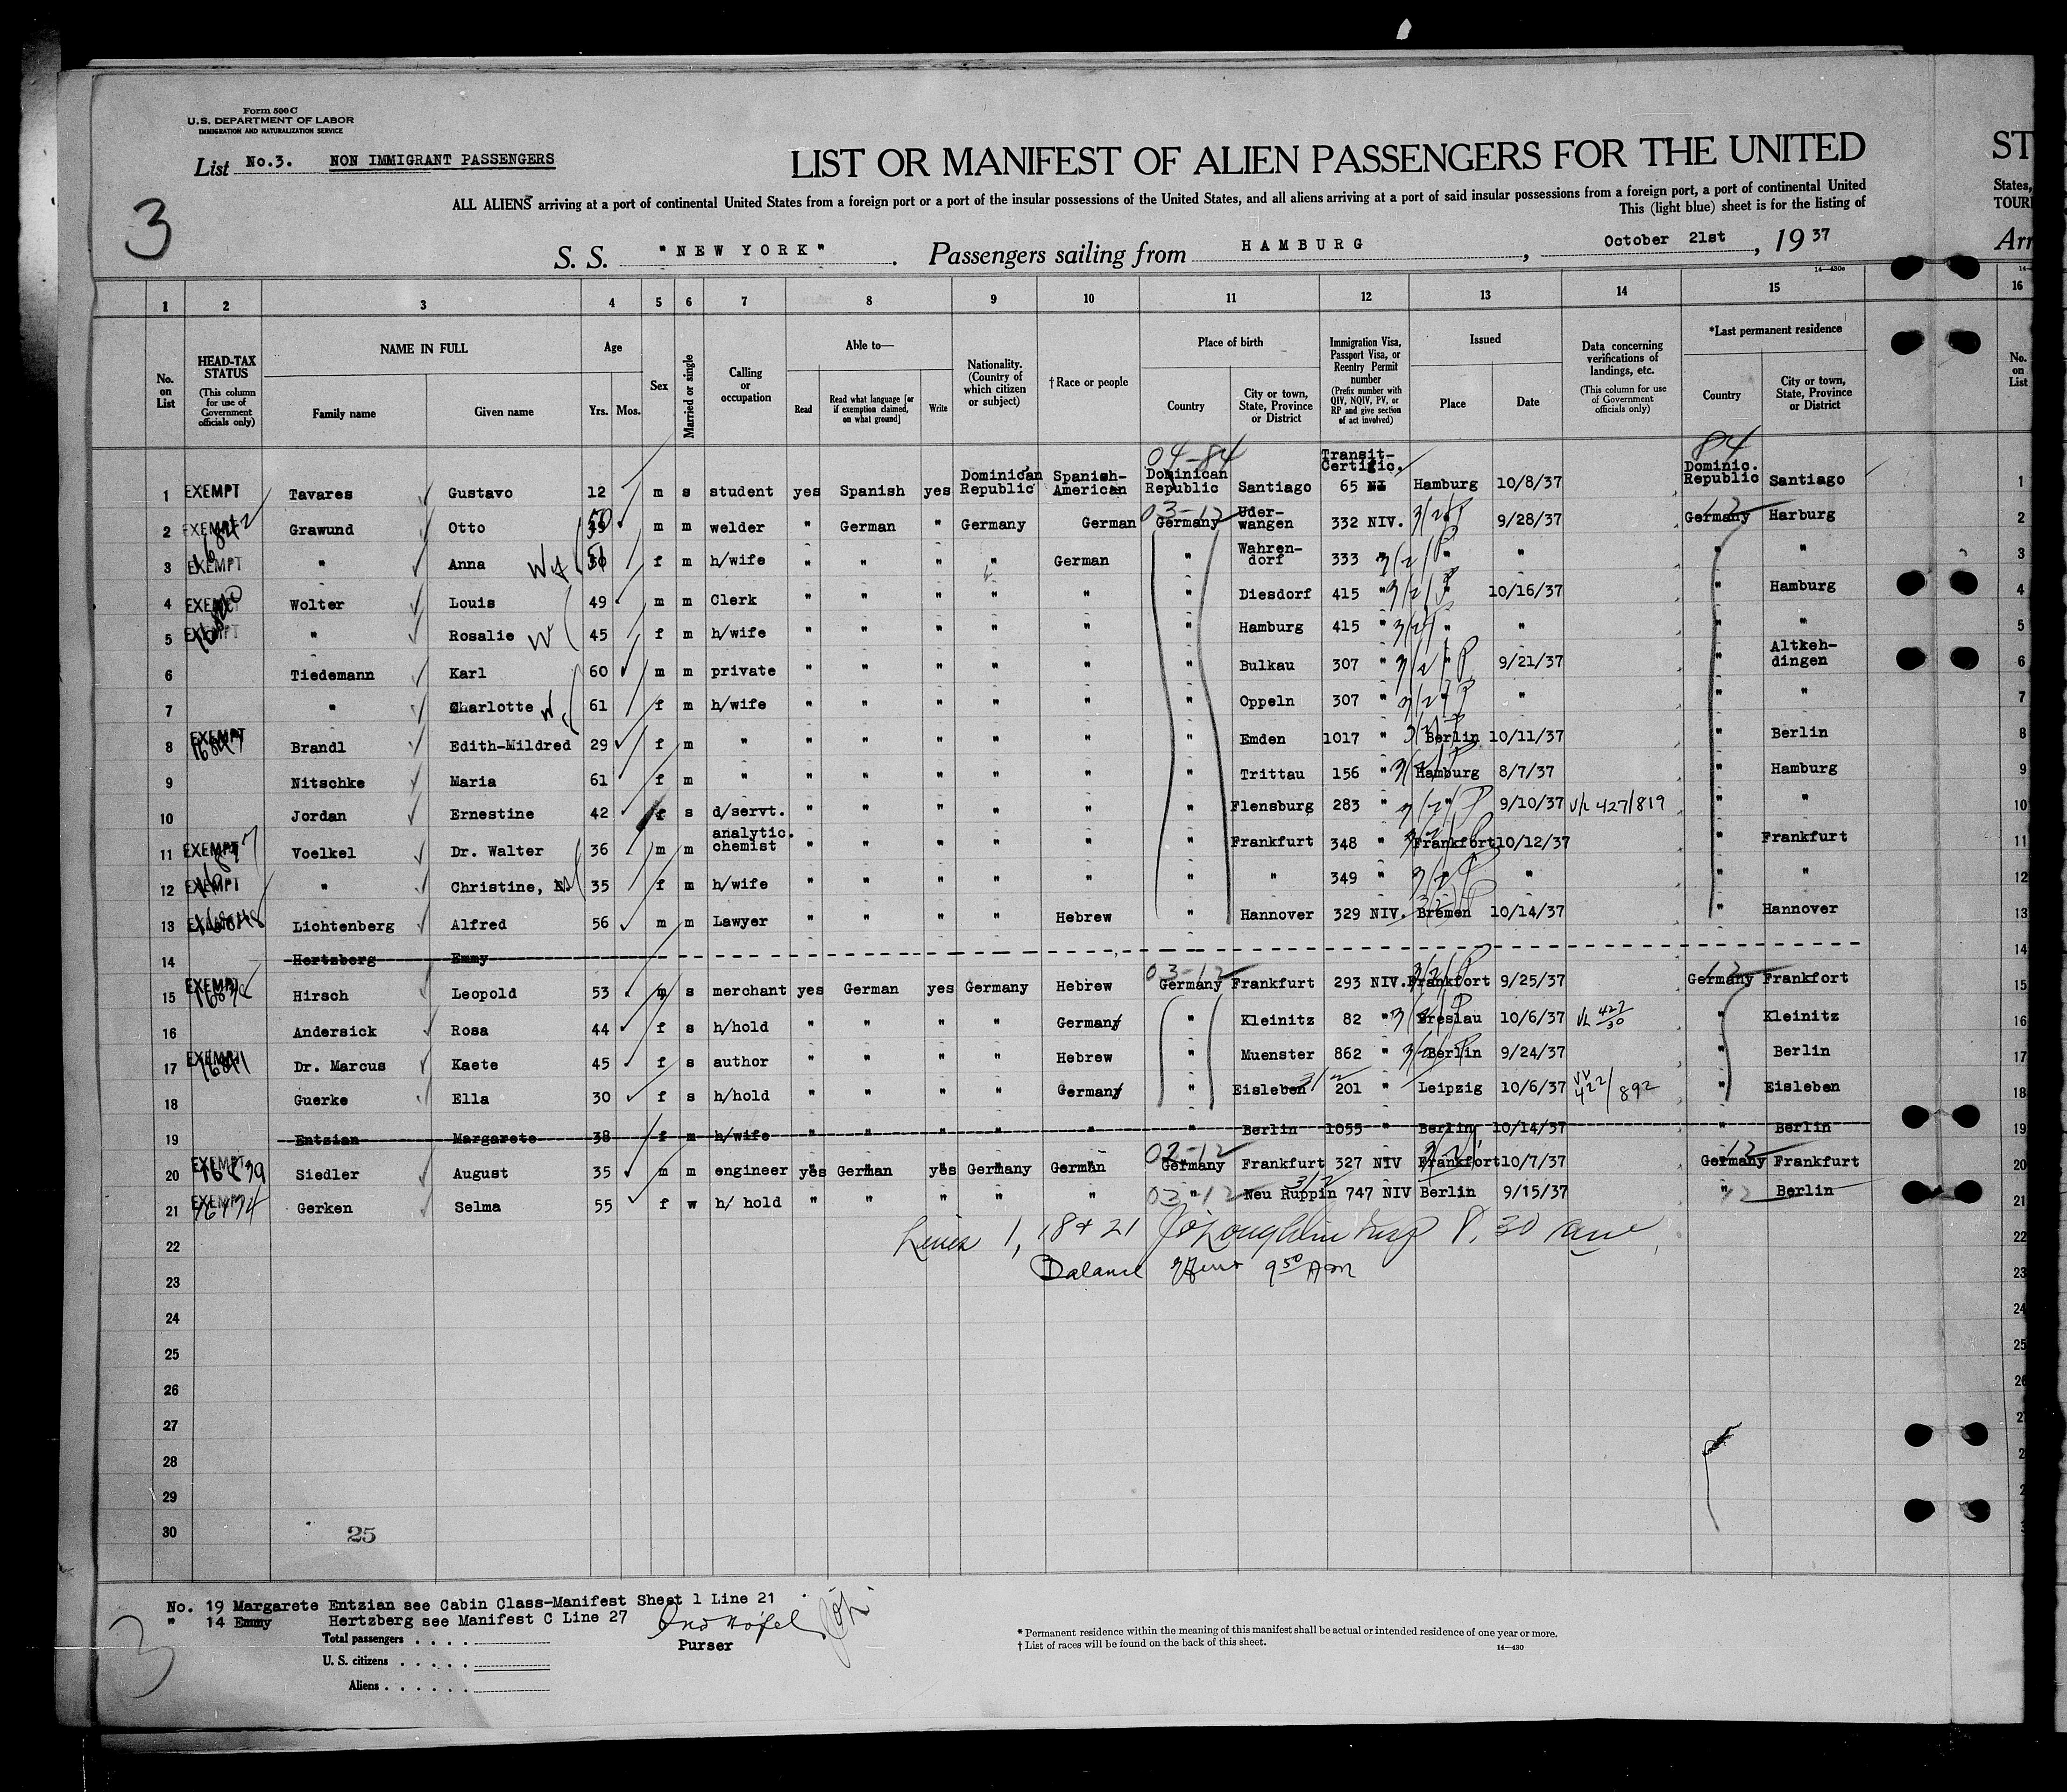 Form 500 C
U.S. DEPARTMENT OF LABOR
IMMIGRATION AND NATURALIZATION SERVICE
List No.3. NON IMMIGRANT PASSENGERS
3
LIST OR MANIFEST OF ALIEN PASSENGERS FOR THE UNITED
ST
ALL ALIENS arriving at a port of continental United States from a foreign port or a port of the insular possessions of the United States, and all aliens arriving at a port of said insular possessions from a foreign port, a port of continental United
States,
This (light blue) sheet is for the listing of
TOUR
S. S. "NEW YORK". Passengers sailing from HAMBURG, October 21st, 1937
Arr
14-430c
1 2 3 4 5 6 7 8 9 10 11 12 13 14 15 16
No. on List
HEAD-TAX STATUS (This column for use of Government officials only)
NAME IN FULL Family name Given name
Age Yrs. Mos.
Sex
Married or single
Calling or occupation
Able to— Read Read what language [or if exemption claimed, on what ground] Write
Nationality. (Country of which citizen or subject)
†Race or people
Place of birth Country City or town, State, Province or District
Immigration Visa, Passport Visa, or Reentry Permit number (Prefix number with QIV, NQIV, PV, or RP and give section of act involved)
Issued Place Date
Data concerning verifications of landings, etc. (This column for use of Government officials only)
*Last permanent residence Country City or town, State, Province or District
No. on List
04-84 84
1 EXEMPT Tavares Gustavo 12 m s student yes Spanish yes Dominican Republic Spanish-American Dominican Republic Santiago Transit-Certific. 65 NI Hamburg 10/8/37 Dominic. Republic Santiago 1
2 EXEMPT Grawund Otto 50 m m welder " German " Germany German 03-12 Germany Uder-wangen 332 NIV. 3/2 " 9/28/37 12 Germany Harburg 2
3 EXEMPT " Anna 51 f m h/wife " " " " German " Wahren-dorf 333 " 3/2 " " " " 3
4 EXEMPT Wolter Louis 49 m m Clerk " " " " " " Diesdorf 415 " 3/2 " 10/16/37 " Hamburg 4
5 EXEMPT " Rosalie W 45 f m h/wife " " " " " " Hamburg 415 " 3/2 " " " " 5
6 Tiedemann Karl 60 m m private " " " " " " Bulkau 307 " 3/2 " 9/21/37 " Altkeh-dingen 6
7 " Charlotte W 61 f m h/wife " " " " " " Oppeln 307 " 3/2 " " " " 7
8 EXEMPT Brandl Edith-Mildred 29 f m " " " " " " " Emden 1017 " 3/2 Berlin 10/11/37 " Berlin 8
9 Nitschke Maria 61 f m " " " " " " " Trittau 156 " 3/2 Hamburg 8/7/37 " Hamburg 9
10 Jordan Ernestine 42 f s d/servt. " " " " " " Flensburg 283 " 3/2 " 9/10/37 V/L 427/819 " " 10
11 EXEMPT Voelkel Dr. Walter 36 m m analytic. chemist " " " " " " Frankfurt 348 " 3/2 Frankfort 10/12/37 " Frankfurt 11
12 EXEMPT " Christine, 35 f m h/wife " " " " " " " 349 " 3/2 " " " 12
13 EXEMPT Lichtenberg Alfred 56 m m Lawyer " " " " Hebrew " Hannover 329 NIV. 3/2 Bremen 10/14/37 " Hannover 13
14 Hertzberg Emmy 14
15 EXEMPT Hirsch Leopold 53 m s merchant yes German yes Germany Hebrew 03-12 Germany Frankfurt 293 NIV. 3/2 Frankfort 9/25/37 12 Germany Frankfort 15
16 Andersick Rosa 44 f s h/hold " " " " German " Kleinitz 82 " 3/2 Breslau 10/6/37 V/L 427/30 " Kleinitz 16
17 EXEMPT Dr. Marcus Kaete 45 f s author " " " " Hebrew " Muenster 862 " 3/2 Berlin 9/24/37 " Berlin 17
18 Guerke Ella 30 f s h/hold " " " " German " Eisleben 3/2 201 " Leipzig 10/6/37 422/892 " Eisleben 18
19 Entzian Margarete 38 f m h/wife " " " " " " Berlin 1055 " Berlin 10/14/37 " Berlin 19
20 EXEMPT Siedler August 35 m m engineer yes German yes Germany German 02-12 Germany Frankfurt 327 NIV 3/2 Frankfort 10/7/37 12 Germany Frankfurt 20
21 EXEMPT Gerken Selma 55 f w h/ hold " " " " " 03-12 " Neu Ruppin 3/2 747 NIV Berlin 9/15/37 12 " Berlin 21
22 Lines 1, 18 & 21 J O'Loughlin Insp 8.30 am 22
23 Balance 9 50 AM 23
24 24
25 25
26 26
27
28
29
30
25
No. 19 Margarete Entzian see Cabin Class-Manifest Sheet 1 Line 21
" 14 Emmy Hertzberg see Manifest C Line 27
3
Total passengers . . . .
U. S. citizens . . . . .
Aliens . . . . . .
Purser
* Permanent residence within the meaning of this manifest shall be actual or intended residence of one year or more.
† List of races will be found on the back of this sheet. 14—430